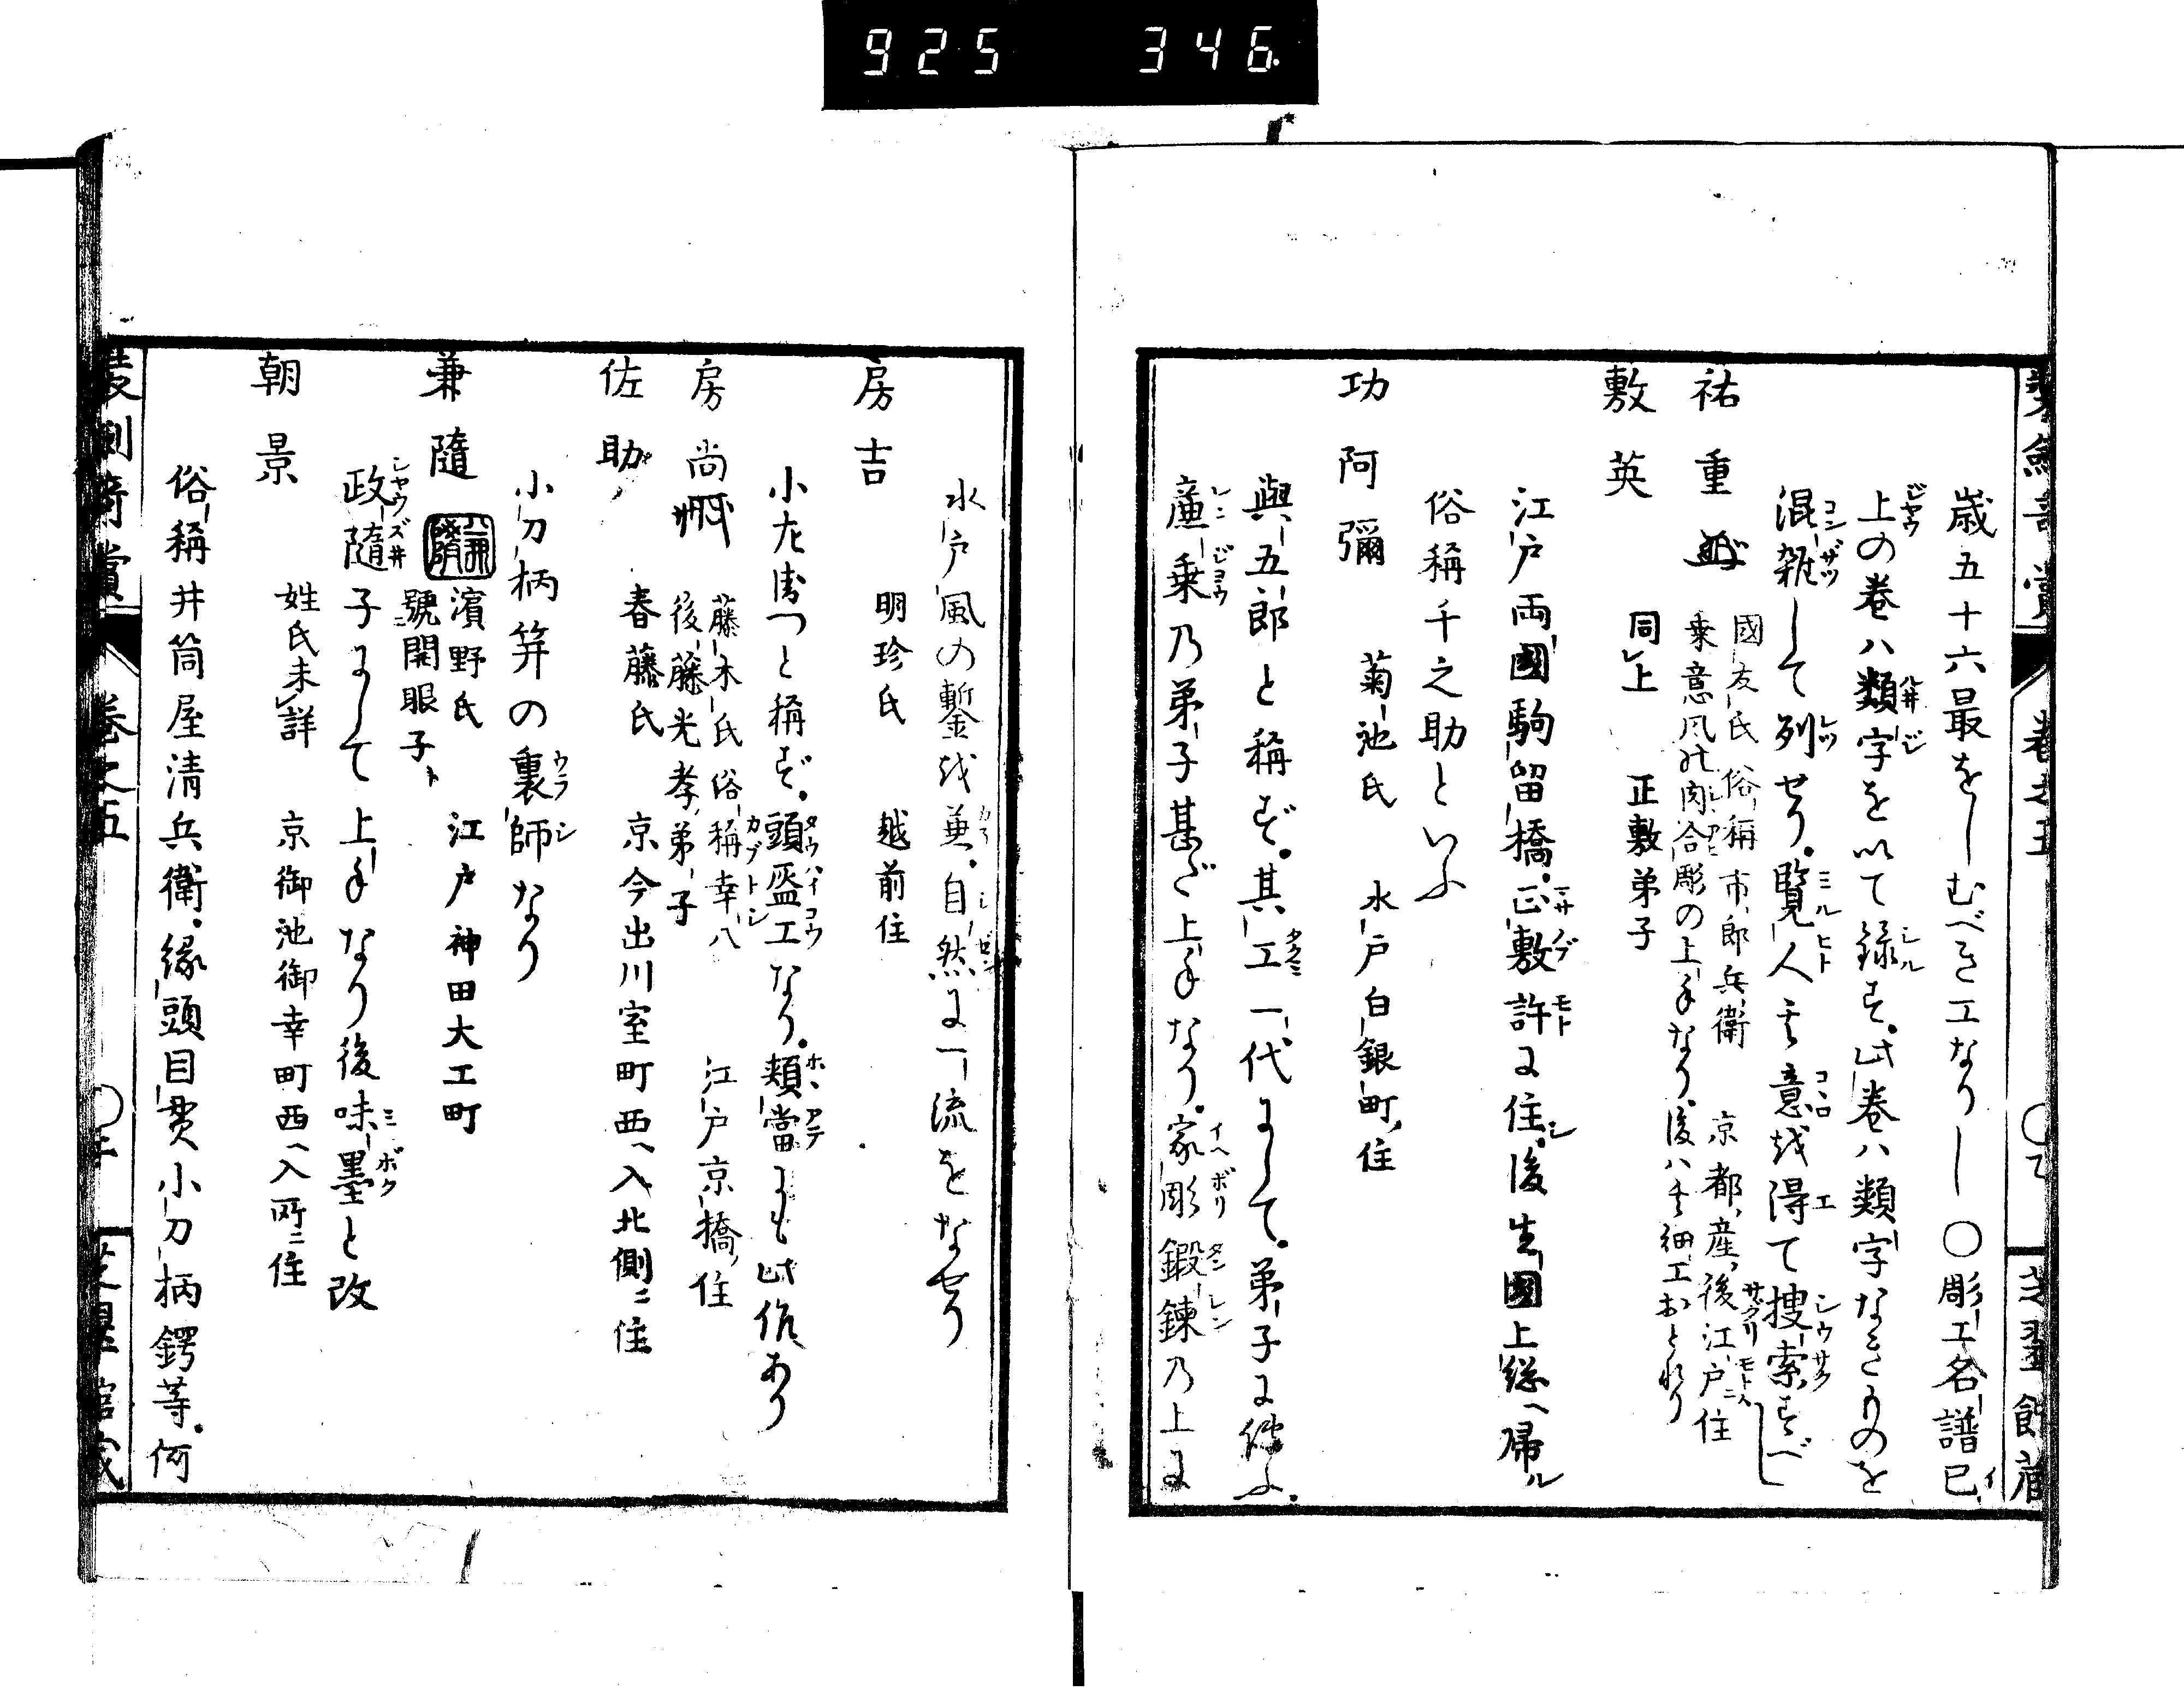 925 346
歳五十六最をしむべき工なりし〇彫工名譜已
上の巻ハ類字を以て録す。此巻ハ類字なきものを
混雑して列せり。覧人其意を得て捜索すべし
祐重 國友氏俗稱市郎兵衛 京都産後江戸ニ住
乗意風の肉合彫の上手なり後ハ其細工おとれり
敷英 同上 正敷弟子
江戸両國駒留橋。正敷許に住。後生國上総へ帰ル
俗稱千之助といふ
功阿彌 菊池氏 水戸白銀町住
與五郎と稱す。其工一代にして。弟子に傳ふ。
廉乗乃弟子甚だ上手なり。家彫鍛錬乃上に
水戸風の鏨を兼。自然に一流をなせり
房吉 明珍氏 越前住
小左衛つと稱す。頭盔工なり。頬當にも此作あり
房尚 藤木氏俗稱幸八 江戸京橋住
後藤光孝弟子
佐助 春藤氏 京今出川室町西へ入北側ニ住
小刀柄笄の裏師なり
兼隨 濱野氏 江戸神田大工町
號開眼子ト
政隨子にして上手なり後味墨と改
朝景 姓氏未詳 京御池御幸町西へ入所ニ住
俗稱井筒屋清兵衛。縁頭目貫小刀柄鍔等。何
卷之五